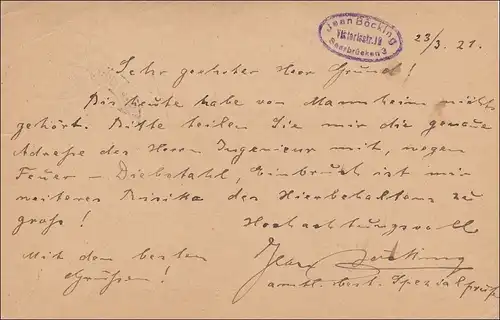 Jean Böcking
Viktoriastr. 19
Saarbrücken 3
23/3. 21.
Sehr geehrter Herr Grund!
Bis heute habe von Mannheim nichts
gehört. Bitte teilen Sie mir die genaue
Adresse des Herrn Ingenieur mit, wegen
Feuer – Diebstahl, Einbruch ist mir
weiteres Risiko des Hierbehaltens zu
groß!
Hochachtungsvoll
Mit den besten
Grüßen!
Jean Böcking
amtl. best. Spezialprüfer